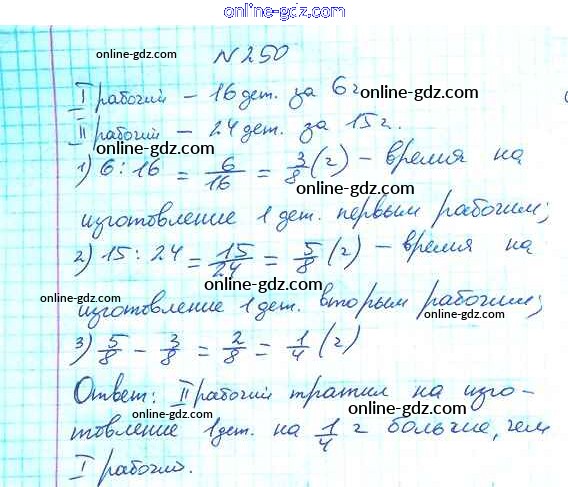 online-gdz.com
online-gdz.com
N 250
online-gdz.com
I рабочий – 16 дет. за 6 г
online-gdz.com
II рабочий – 24 дет. за 15 г.
online-gdz.com
1) 6 : 16 = 6/16 = 3/8 (г) – время на
online-gdz.com
изготовление 1 дет. первым рабочим;
online-gdz.com
2) 15 : 24 = 15/24 = 5/8 (г) – время на
online-gdz.com
online-gdz.com
изготовление 1 дет. вторым рабочим;
online-gdz.com
3) 5/8 – 3/8 = 2/8 = 1/4 (г)
online-gdz.com
Ответ: II рабочий тратил на изго-
online-gdz.com
товление 1 дет. на 1/4 г больше, чем
online-gdz.com
I рабочий.
online-gdz.com